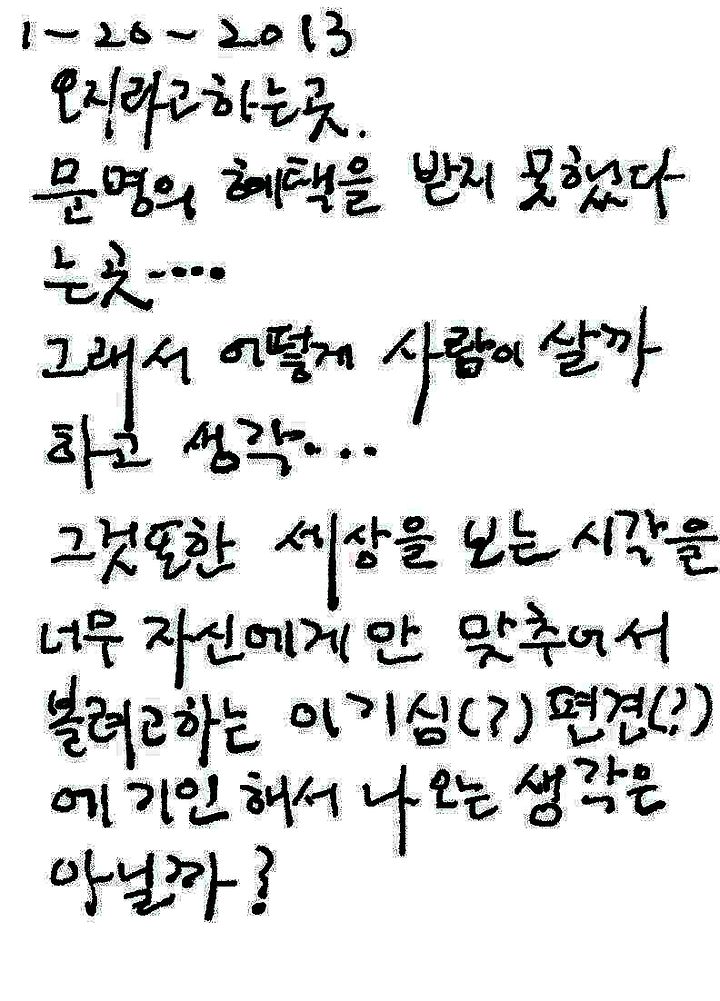 1-20-2013
오지라고하는곳.
문명의 혜택을 받지 못했다
는곳....
그래서 어떻게 사람이 살까
하고 생각...
그것또한 세상을 보는 시각을
너무 자신에게만 맞추어서
볼려고하는 이기심(?) 편견(?)
에 기인해서 나오는 생각은
아닐까?